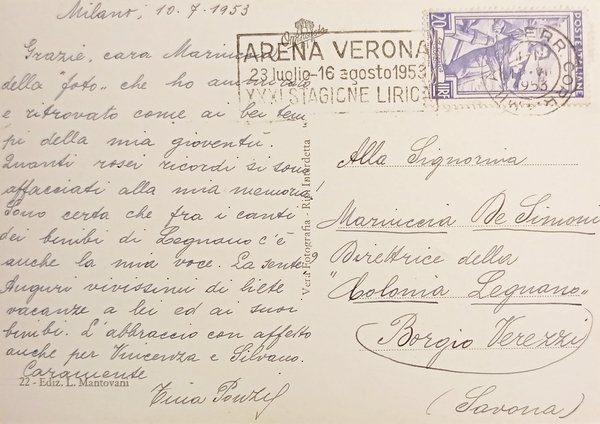 Milano, 10.7.1953
Grazie, cara Mariuccia
della "foto" che ho ammirato
e ritrovato come ai bei tem
pi della mia gioventù.
Quanti rosei ricordi si sono
affacciati alla mia memoria!
Sono certa che fra i canti
dei bimbi di Legnano c'è
anche la mia voce. La sente?
Auguri vivissimi di liete
vacanze a lei ed ai suoi
bimbi. L'abbraccio con affetto
anche per Vincenza e Silvano.
Caramente
Tina
22 - Ediz. L. Mantovani
Vera Fotografia - Rip. Interdetta
ARENA VERONA
23 luglio-16 agosto 1953
XXXI STAGIONE LIRIC
20
LIRE
POSTE ITALIANE
1953
Alla Signorina
Mariuccia De Simoni
Direttrice della
"Colonia Legnano"
Borgio Verezzi
(Savona)